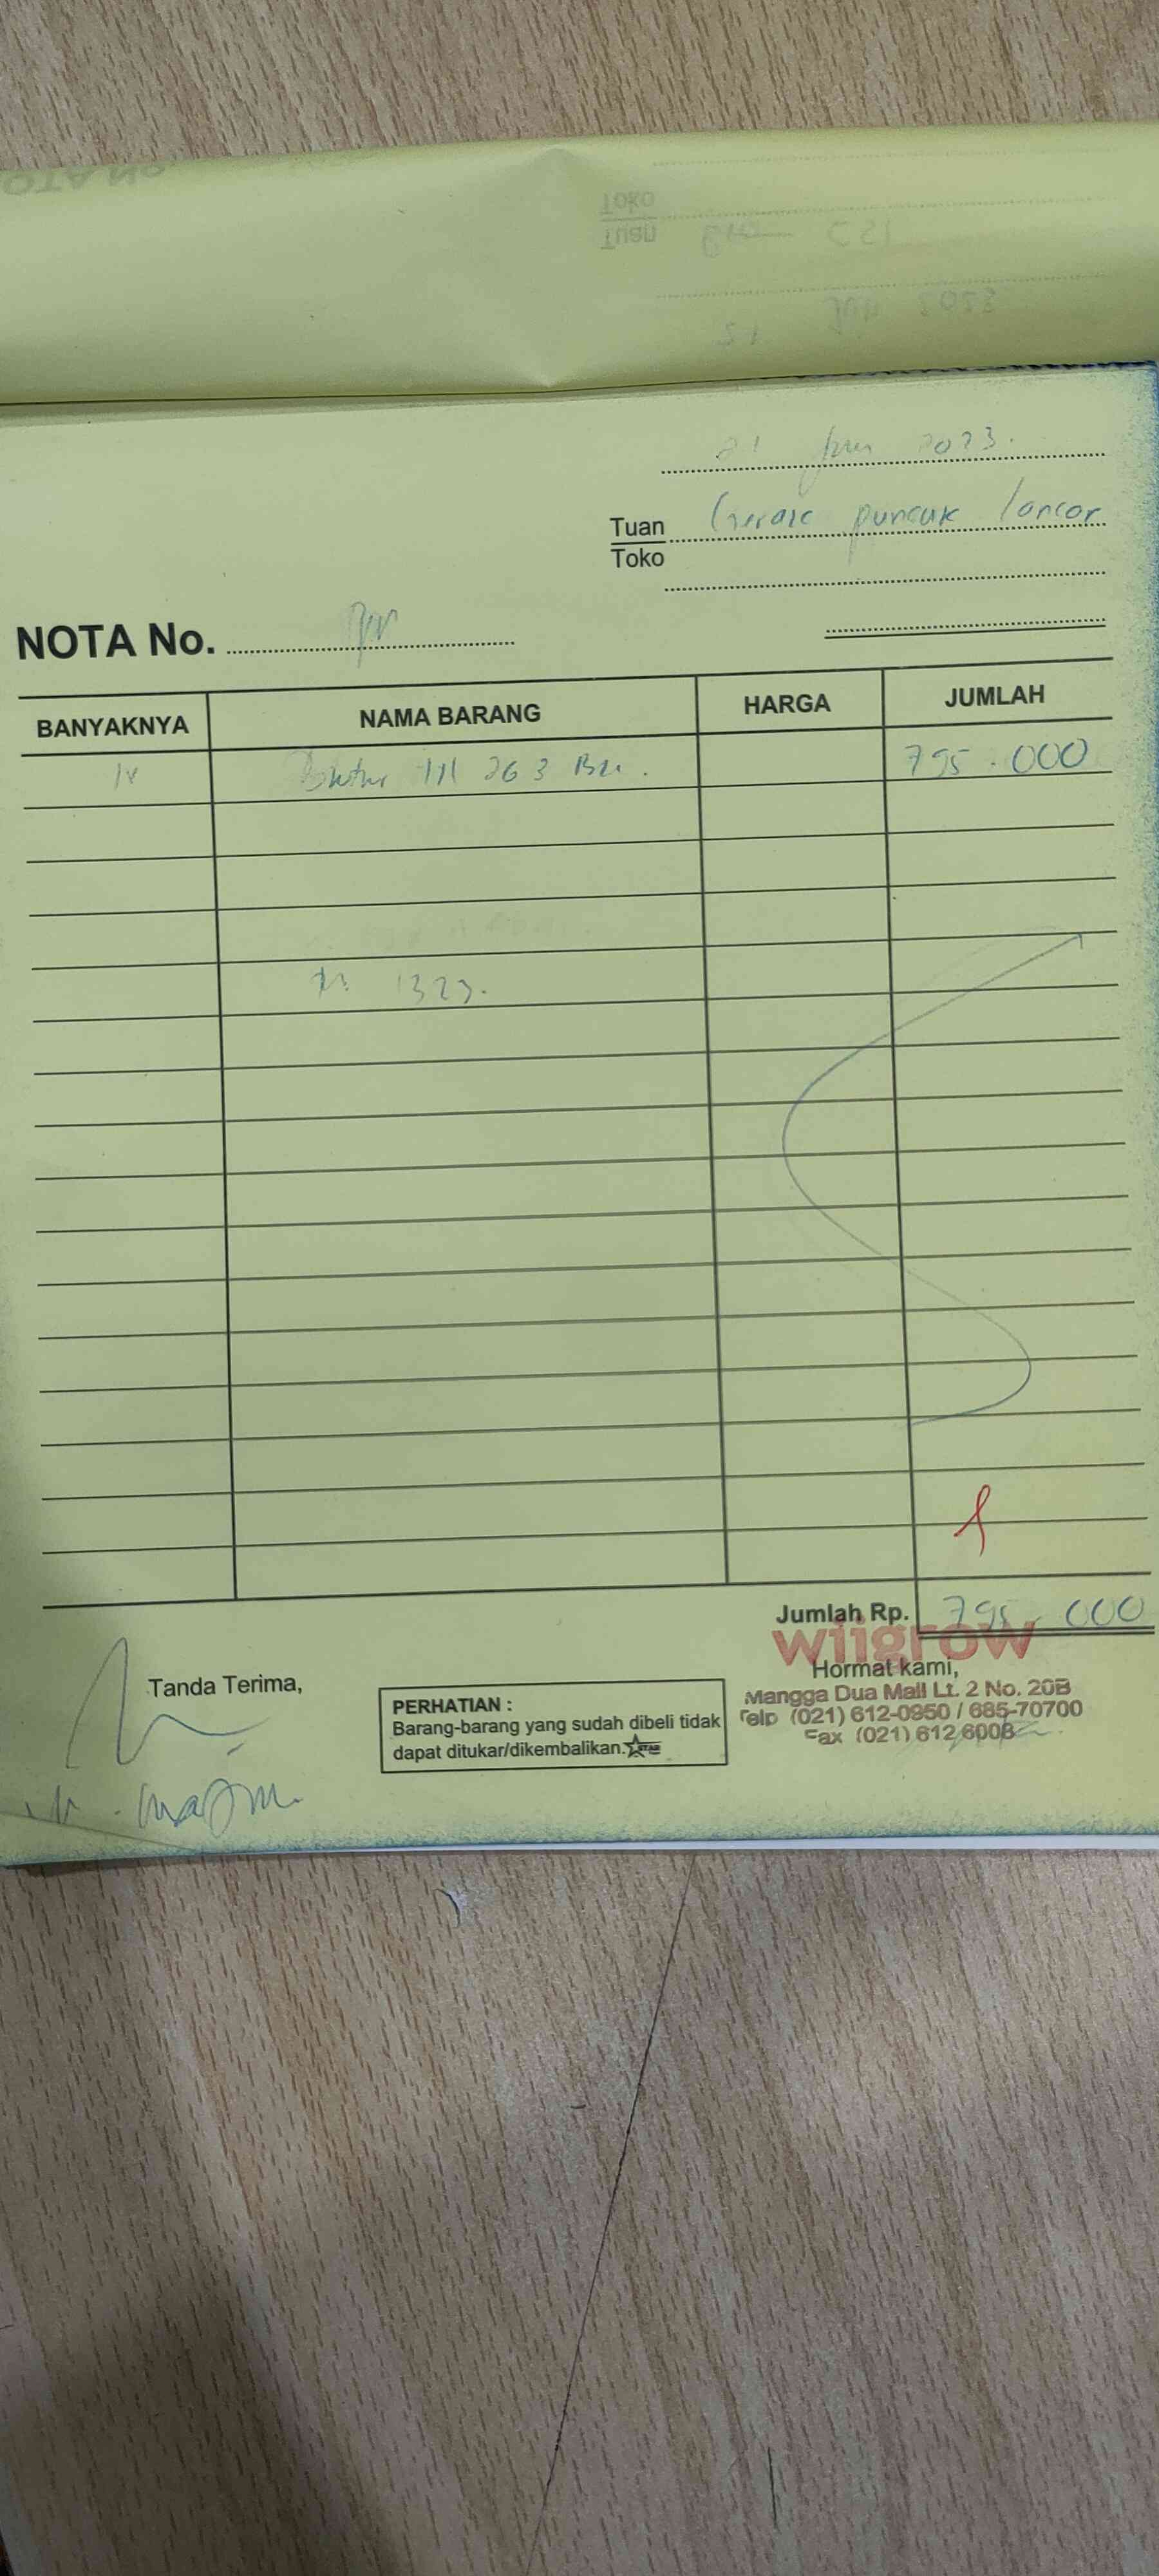 2023.
Tuan
Toko
puncuk lancar
NOTA No.
BANYAKNYA NAMA BARANG HARGA JUMLAH
263 795.000
1323.
Jumlah Rp. 795.000
wiigrow
Hormat kami,
Mangga Dua Mall Lt. 2 No. 20B
Telp (021) 612-0950 / 685-70700
Fax (021) 612 6008
Tanda Terima,
PERHATIAN :
Barang-barang yang sudah dibeli tidak
dapat ditukar/dikembalikan.